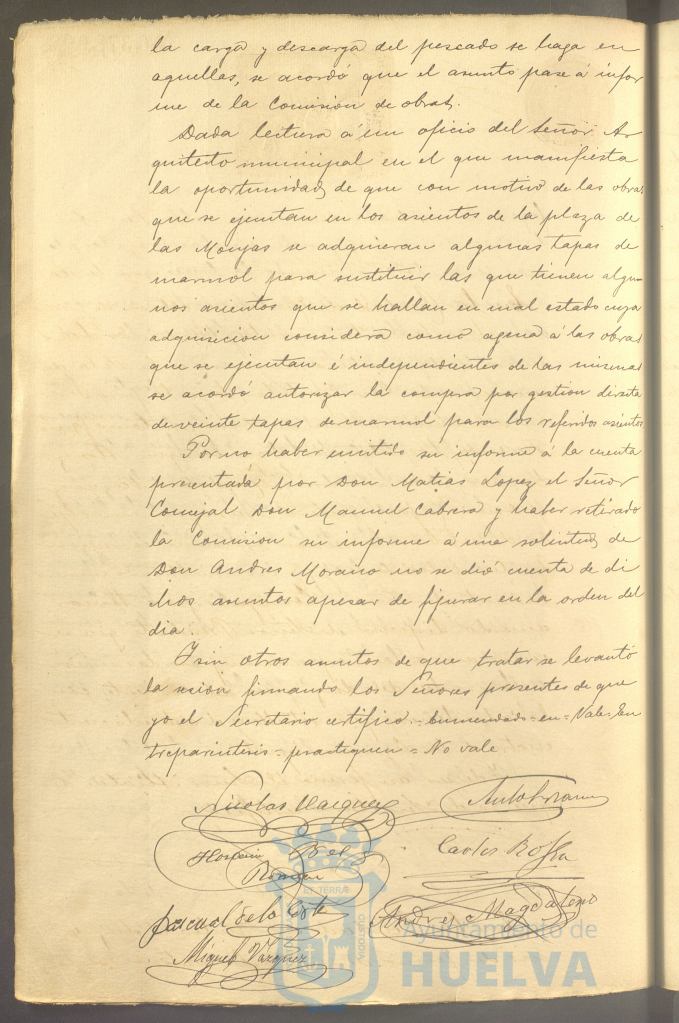 la carga y descarga del pescado se haga en
aquellas, se acordó que el asunto pase á infor
me de la Comision de obras.
Dada lectura á un oficio del Señor Ar
quitecto municipal en el que manifiesta
la oportunidad de que con motivo de las obras
que se ejecutan en los asientos de la plaza de
las Monjas se adquieran algunas tapas de
marmol para sustituir las que tienen algu
nos asientos que se hallan en mal estado cuya
adquisicion considera como agena á las obras
que se ejecutan é independientes de las mismas
se acordó autorizar la compra por gestion directa
de veinte tapas de marmol para los referidos asientos
Por no haber emitido su informe á la cuenta
presentada por Don Matias Lopez el Señor
Concejal Don Manuel Cabrera y haber retirado
la Comision su informe á una solicitud de
Don Andres Morano no se dió cuenta de di
chos asuntos apesar de figurar en la orden del
dia.
I sin otros asuntos de que tratar se levantó
la sesion firmando los Señores presentes de que
yo el Secretario certifico.=Enmendado=en=Vale=En
treparentesis=practiquen=No vale
Nicolas Vazquez
Carlos
Pascual de la Corte
Andres Magdaleno
Miguel Vazquez
ET TERRÆ
CUSTODIA
Ayuntamiento de
HUELVA